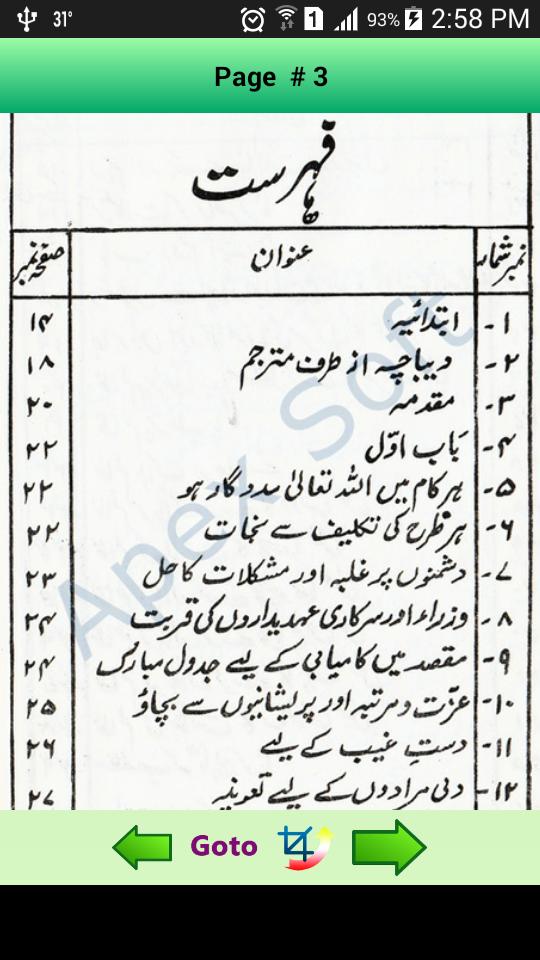 31°
1
93%
2:58 PM
Page # 3
فہرست
نمبر شمار عنوان صفحہ نمبر
۱- ابتدائیہ ۱۴
۲- دیباچہ از طرف مترجم ۱۸
۳- مقدمہ ۲۰
۴- بَاب اوّل ۲۲
۵- ہر کام میں اللہ تعالیٰ مددگار ہو ۲۲
۶- ہر طرح کی تکلیف سے نجات ۲۲
۷- دشمنوں پر غلبہ اور مشکلات کا حل ۲۳
۸- وزراء اور سرکاری عہدیداروں کی قربت ۲۴
۹- مقصد میں کامیابی کے لیے جدول مبارک ۲۴
۱۰- عزّت و مرتبہ اور پریشانیوں سے بچاؤ ۲۵
۱۱- دستِ غیب کے لیے ۲۶
۱۲- دلی مرادوں کے لیے تعویذ ۲۷
Apex Soft
Goto